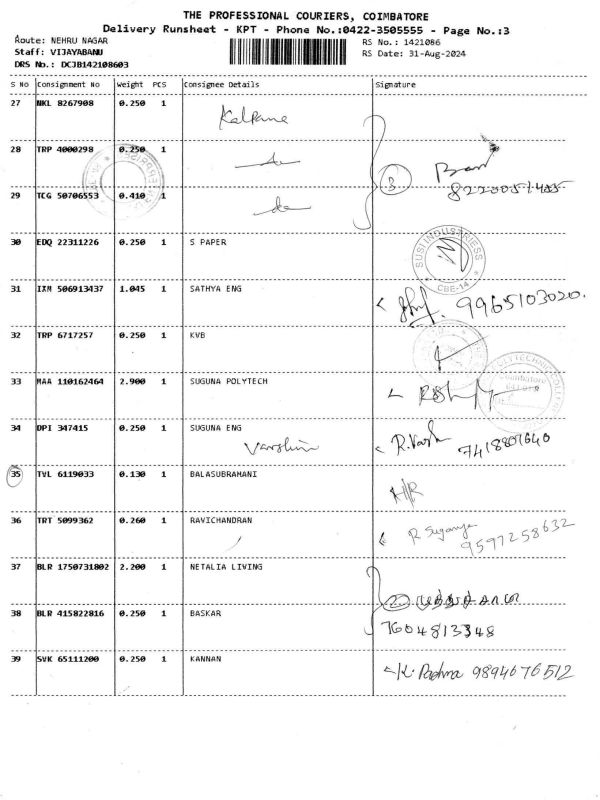 THE PROFESSIONAL COURIERS, COIMBATORE
Delivery Runsheet - KPT - Phone No.:0422-3505555 - Page No.:3
Route: NEHRU NAGAR
Staff: VIJAYABANU
DRS No.: DCJB142108603
RS No.: 1421086
RS Date: 31-Aug-2024
S No Consignment No Weight PCS Consignee Details Signature
27 NKL 8267908 0.250 1 Kalpana
28 TRP 4000298 0.250 1
29 TCG 50706553 0.410 1
3
30 EDQ 22311226 0.250 1 S PAPER
SUSI INDUSTRIESS
CBE-14
31 IXM 506913437 1.045 1 SATHYA ENG 9965103020.
32 TRP 6717257 0.250 1 KVB
33 MAA 110162464 2.900 1 SUGUNA POLYTECH
34 DPI 347415 0.250 1 SUGUNA ENG
Varshini R.Varsh 7418807640
35 TVL 6119033 0.130 1 BALASUBRAMANI
36 TRT 5099362 0.260 1 RAVICHANDRAN R Suganya
9597258632
37 BLR 1750731802 2.200 1 NETALIA LIVING
2
38 BLR 415822816 0.250 1 BASKAR 7604813348
39 SVK 65111200 0.250 1 KANNAN K. Padma 9894676512